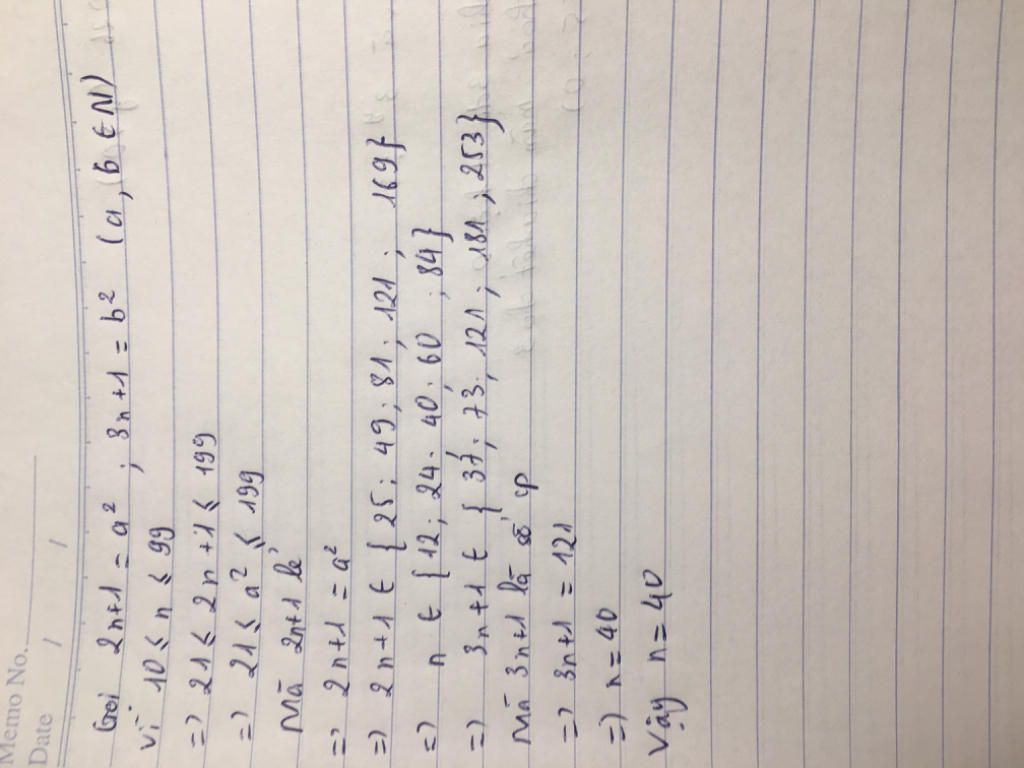 Memo No.
Date / /
Gọi 2n+1 = a² ; 3n+1 = b² (a, b ∈ N)
Vì 10 ≤ n ≤ 99
=> 21 ≤ 2n+1 ≤ 199
=> 21 ≤ a² ≤ 199
Mà 2n+1 lẻ
=> 2n+1 = a²
=> 2n+1 ∈ { 25; 49; 81; 121; 169}
=> n ∈ {12; 24; 40; 60; 84}
=> 3n+1 ∈ { 37; 73; 121; 181; 253}
Mà 3n+1 là số cp
=> 3n+1 = 121
=> n=40
Vậy n=40